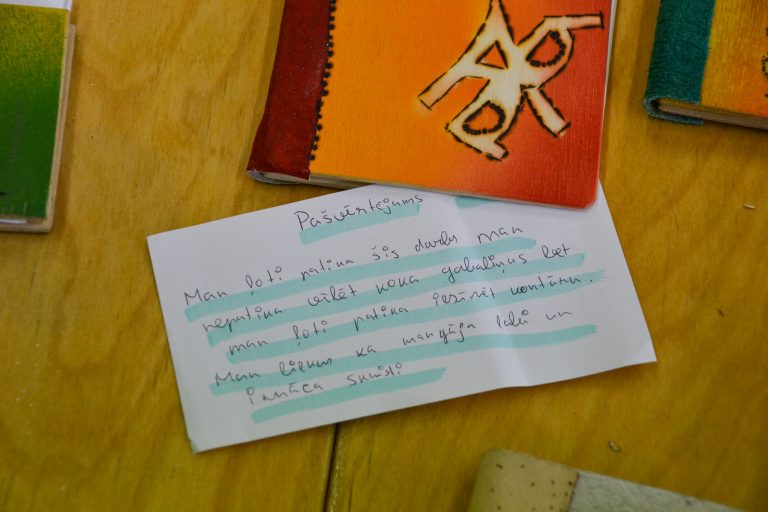 Pašvērtējums
Man ļoti patika šis darbs man
nepatika vīlēt koka gabaliņus bet
man ļoti patika kontūru.
Man liekas ka man gāja labi un
iznāca skaisti